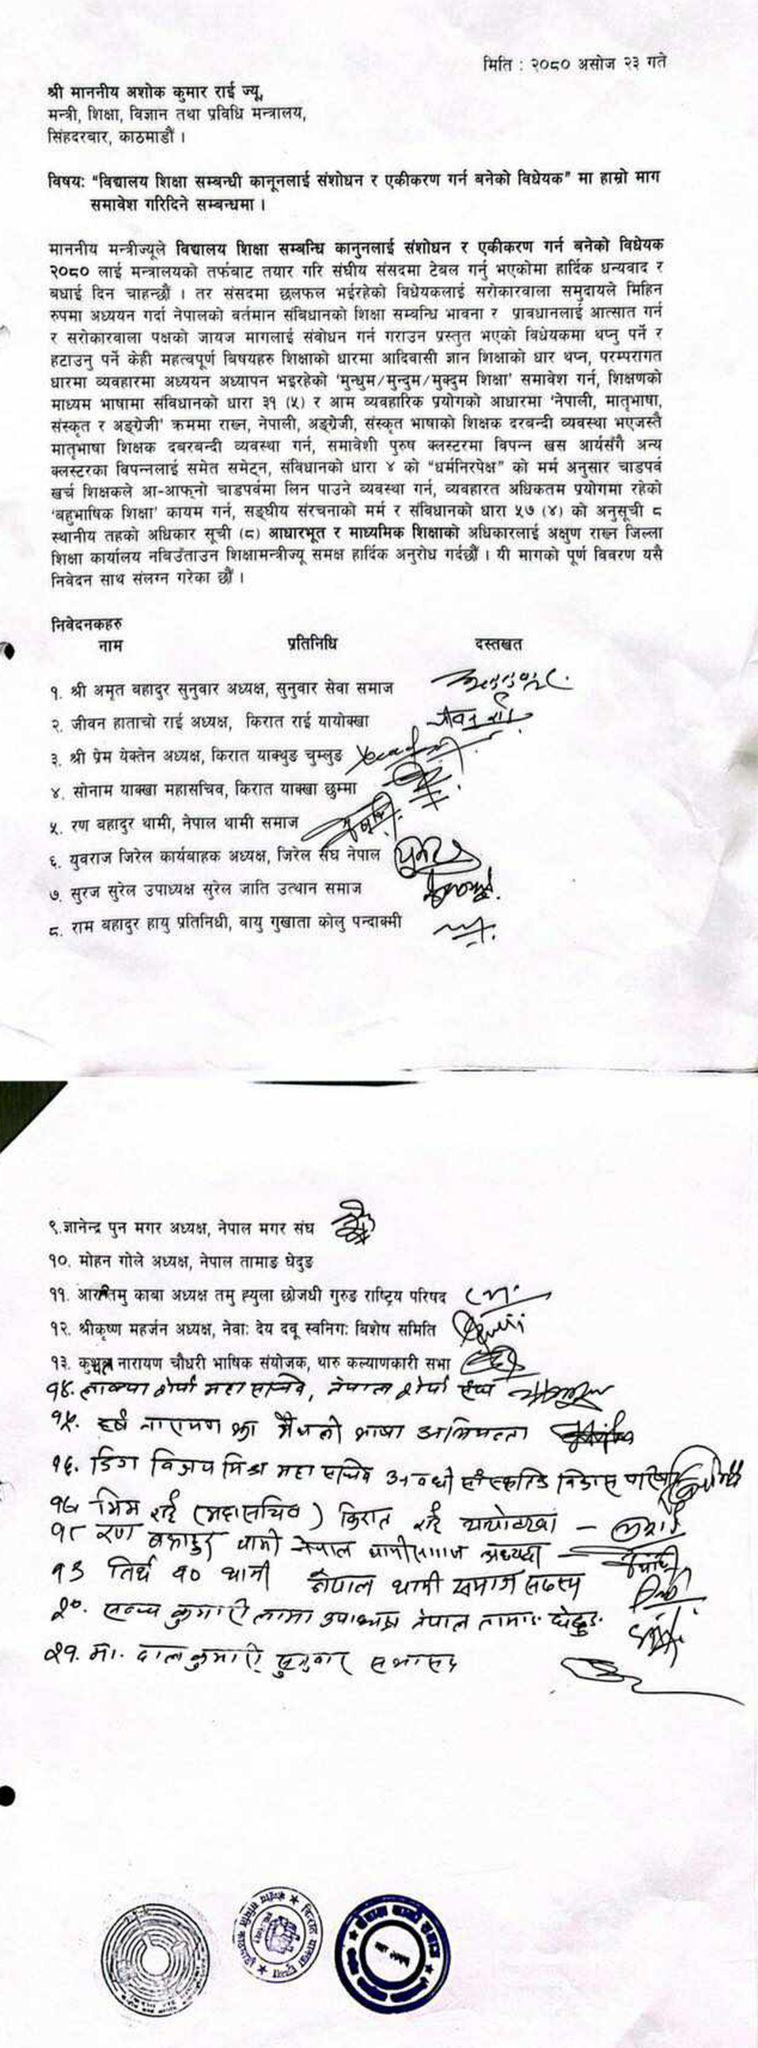 मिति : २०८० असोज २३ गते
श्री माननीय अशोक कुमार राई ज्यू,
मन्त्री, शिक्षा, विज्ञान तथा प्रविधि मन्त्रालय,
सिंहदरबार, काठमाडौं ।
विषय: “विद्यालय शिक्षा सम्बन्धी कानूनलाई संशोधन र एकीकरण गर्न बनेको विधेयक” मा हाम्रो माग
समावेश गरिदिने सम्बन्धमा ।
माननीय मन्त्रीज्यूले विद्यालय शिक्षा सम्बन्धि कानुनलाई संशोधन र एकीकरण गर्न बनेको विधेयक
२०८० लाई मन्त्रालयको तर्फबाट तयार गरि संघीय संसदमा टेबल गर्नु भएकोमा हार्दिक धन्यवाद र
बधाई दिन चाहन्छौं । तर संसदमा छलफल भईरहेको विधेयकलाई सरोकारवाला समुदायले मिहिन
रुपमा अध्ययन गर्दा नेपालको वर्तमान संविधानको शिक्षा सम्बन्धि भावना र प्रावधानलाई आत्सात गर्न
र सरोकारवाला पक्षको जायज मागलाई संबोधन गर्न गराउन प्रस्तुत भएको विधेयकमा थप्नु पर्ने र
हटाउनु पर्ने केही महत्वपूर्ण विषयहरु शिक्षाको धारमा आदिवासी ज्ञान शिक्षाको धार थप्न, परम्परागत
धारमा व्यवहारमा अध्ययन अध्यापन भइरहेको ‘मुन्धुम/मुन्दुम/मुक्दुम शिक्षा’ समावेश गर्न, शिक्षणको
माध्यम भाषामा संविधानको धारा ३१ (५) र आम व्यवहारिक प्रयोगको आधारमा ‘नेपाली, मातृभाषा,
संस्कृत र अङ्ग्रेजी’ क्रममा राख्न, नेपाली, अङ्ग्रेजी, संस्कृत भाषाको शिक्षक दरबन्दी व्यवस्था भएजस्तै
मातृभाषा शिक्षक दबरबन्दी व्यवस्था गर्न, समावेशी पुरुष क्लस्टरमा विपन्न खस आर्यसँगै अन्य
क्लस्टरका विपन्नलाई समेत समेट्न, संविधानको धारा ४ को “धर्मनिरपेक्ष” को मर्म अनुसार चाडपर्व
खर्च शिक्षकले आ-आफ्नो चाडपर्वमा लिन पाउने व्यवस्था गर्न, व्यवहारत अधिकतम प्रयोगमा रहेको
‘बहुभाषिक शिक्षा’ कायम गर्न, सङ्घीय संरचनाको मर्म र संविधानको धारा ५७ (४) को अनुसूची ८
स्थानीय तहको अधिकार सूची (८) आधारभूत र माध्यमिक शिक्षाको अधिकारलाई अक्षुण राख्न जिल्ला
शिक्षा कार्यालय नबिउँताउन शिक्षामन्त्रीज्यू समक्ष हार्दिक अनुरोध गर्दछौं । यी मागको पूर्ण विवरण यसै
निवेदन साथ संलग्न गरेका छौं ।
निवेदनकहरु
नाम प्रतिनिधि दस्तखत
१. श्री अमृत बहादुर सुनुवार अध्यक्ष, सुनुवार सेवा समाज
२. जीवन हाताचो राई अध्यक्ष, किरात राई यायोक्खा जीवन राई
३. श्री प्रेम येक्तेन अध्यक्ष, किरात याक्थुङ चुम्लुङ
४. सोनाम याक्खा महासचिव, किरात याक्खा छुम्मा
५. रण बहादुर थामी, नेपाल थामी समाज
६. युवराज जिरेल कार्यबाहक अध्यक्ष, जिरेल संघ नेपाल
७. सुरज सुरेल उपाध्यक्ष सुरेल जाति उत्थान समाज
८. राम बहादुर हायु प्रतिनिधी, वायु गुखाता कोलु पन्दाक्मी
९. ज्ञानेन्द्र पुन मगर अध्यक्ष, नेपाल मगर संघ
१०. मोहन गोले अध्यक्ष, नेपाल तामाङ घेदुङ
११. काबा अध्यक्ष तमु ह्युला छोजधी गुरुङ राष्ट्रिय परिषद
१२. श्रीकृष्ण महर्जन अध्यक्ष, नेवाः देय दबू स्वनिगः विशेष समिति
१३. नारायण चौधरी भाषिक संयोजक, थारु कल्याणकारी सभा
१४. महासचिव, नेपाल शेर्पा संघ
१५. हर्ष नारायण झा मैथली भाषा अभियन्ता
१६. विजय मिश्र महासचिव अवधी सांस्कृतिक विकास परिषद
१७ भिम राई (महासचिव) किरात राई यायोक्खा –
१८ रण बहादुर थामी नेपाल थामी समाज अध्यक्ष –
१९ तिर्थ ब० थामी नेपाल थामी समाज सदस्य
२०. कुमारी लामा उपाध्यक्ष नेपाल तामाङ घेदुङ
२१. मा. दाल कुमारी सुनुवार सभासद